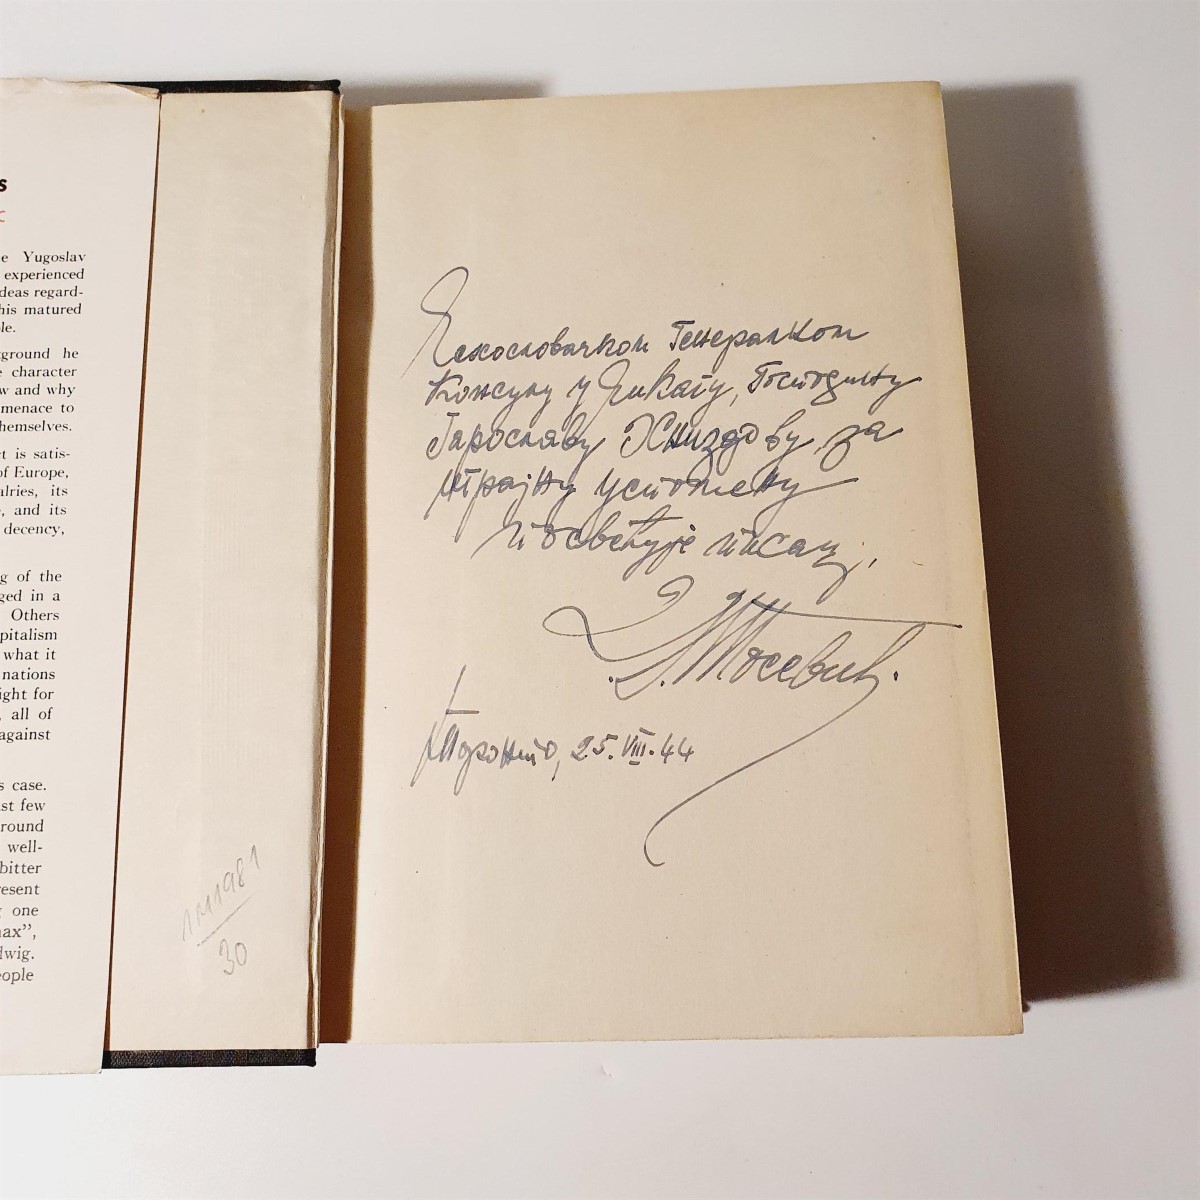 s
c
e Yugoslav
experienced
deas regard-
his matured
le.
ground he
e character
w and why
menace to
hemselves.
t is satis-
of Europe,
alries, its
, and its
decency,
g of the
ged in a
Others
pitalism
what it
nations
ight for
, all of
against
s case.
st few
round
well-
bitter
resent
one
nax”,
dwig.
eople
30
Чехословачком Генералном
Консулу у Чикагу, Господину
Јарославу Хниздову, за
трајну успомену
посвећује писац,
Д. Тосевић.
Торонто, 25.VIII.44